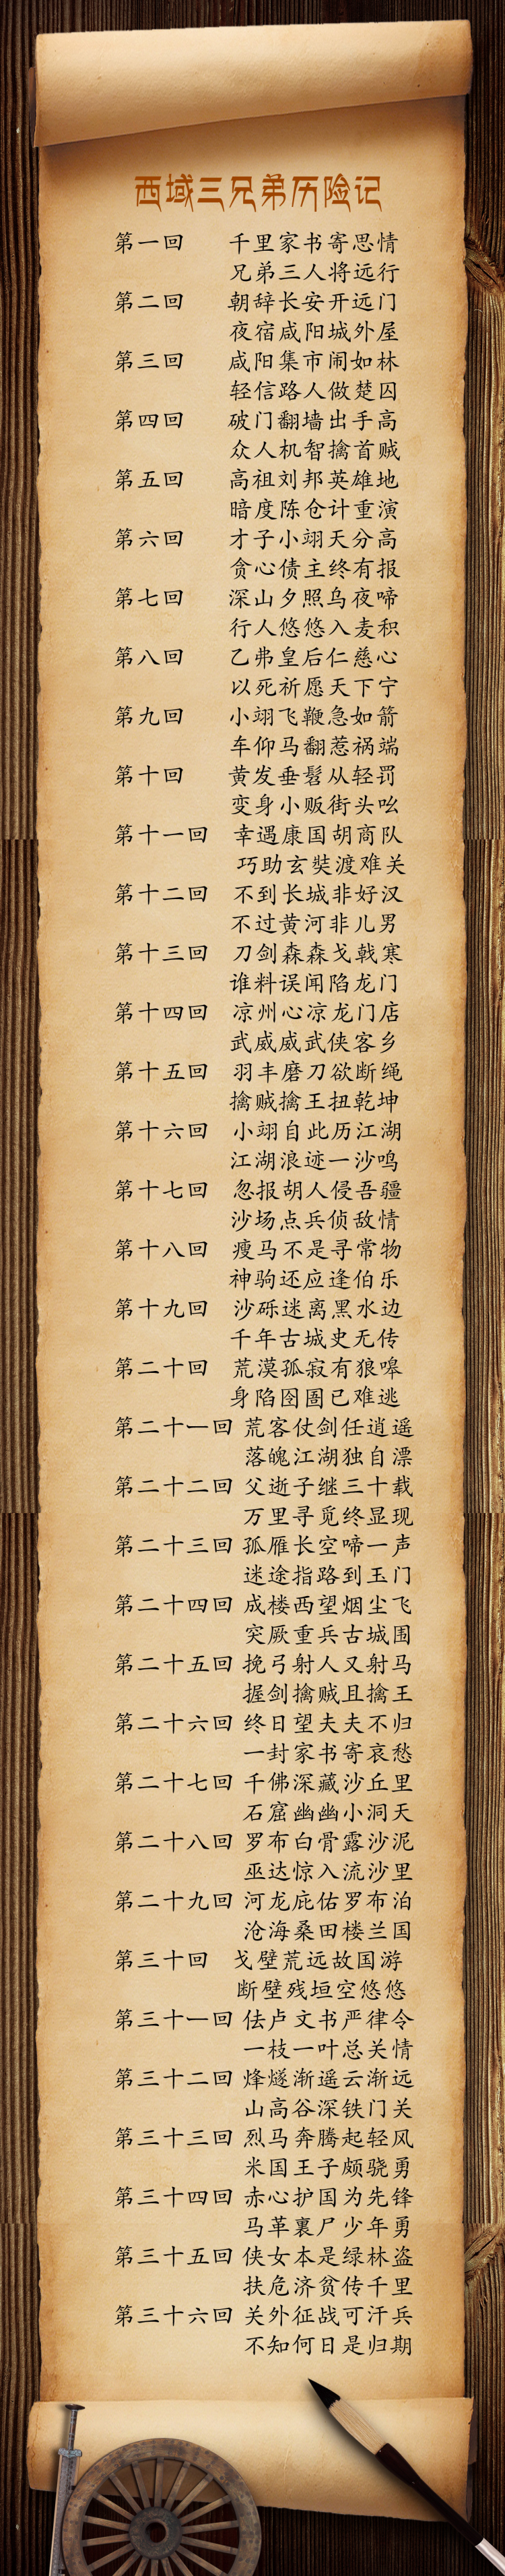 西域三兄弟历险记
第一回 千里家书寄思情
兄弟三人将远行
第二回 朝辞长安开远门
夜宿咸阳城外屋
第三回 咸阳集市闹如林
轻信路人做楚囚
第四回 破门翻墙出手高
众人机智擒首贼
第五回 高祖刘邦英雄地
暗度陈仓计重演
第六回 才子小翊天分高
贪心债主终有报
第七回 深山夕照乌夜啼
行人悠悠入麦积
第八回 乙弗皇后仁慈心
以死祈愿天下宁
第九回 小翊飞鞭急如箭
车仰马翻惹祸端
第十回 黄发垂髫从轻罚
变身小贩街头吆
第十一回 幸遇康国胡商队
巧助玄奘渡难关
第十二回 不到长城非好汉
不过黄河非儿男
第十三回 刀剑森森戈戟寒
谁料误闻陷龙门
第十四回 凉州心凉龙门店
武威威武侠客乡
第十五回 羽丰磨刀欲断绳
擒贼擒王扭乾坤
第十六回 小翊自此历江湖
江湖浪迹一沙鸣
第十七回 忽报胡人侵吾疆
沙场点兵侦敌情
第十八回 瘦马不是寻常物
神驹还应逢伯乐
第十九回 沙砾迷离黑水边
千年古城史无传
第二十回 荒漠孤寂有狼嗥
身陷囹圄已难逃
第二十一回 荒客仗剑任逍遥
落魄江湖独自漂
第二十二回 父逝子继三十载
万里寻觅终显现
第二十三回 孤雁长空啼一声
迷途指路到玉门
第二十四回 戍楼西望烟尘飞
突厥重兵古城围
第二十五回 挽弓射人又射马
握剑擒贼且擒王
第二十六回 终日望夫夫不归
一封家书寄哀愁
第二十七回 千佛深藏沙丘里
石窟幽幽小洞天
第二十八回 罗布白骨露沙泥
巫达惊入流沙里
第二十九回 河龙庇佑罗布泊
沧海桑田楼兰国
第三十回 戈壁荒远故国游
断壁残垣空悠悠
第三十一回 佉卢文书严律令
一枝一叶总关情
第三十二回 烽燧渐遥云渐远
山高谷深铁门关
第三十三回 烈马奔腾起轻风
米国王子颇骁勇
第三十四回 赤心护国为先锋
马革裹尸少年勇
第三十五回 侠女本是绿林盗
扶危济贫传千里
第三十六回 关外征战可汗兵
不知何日是归期